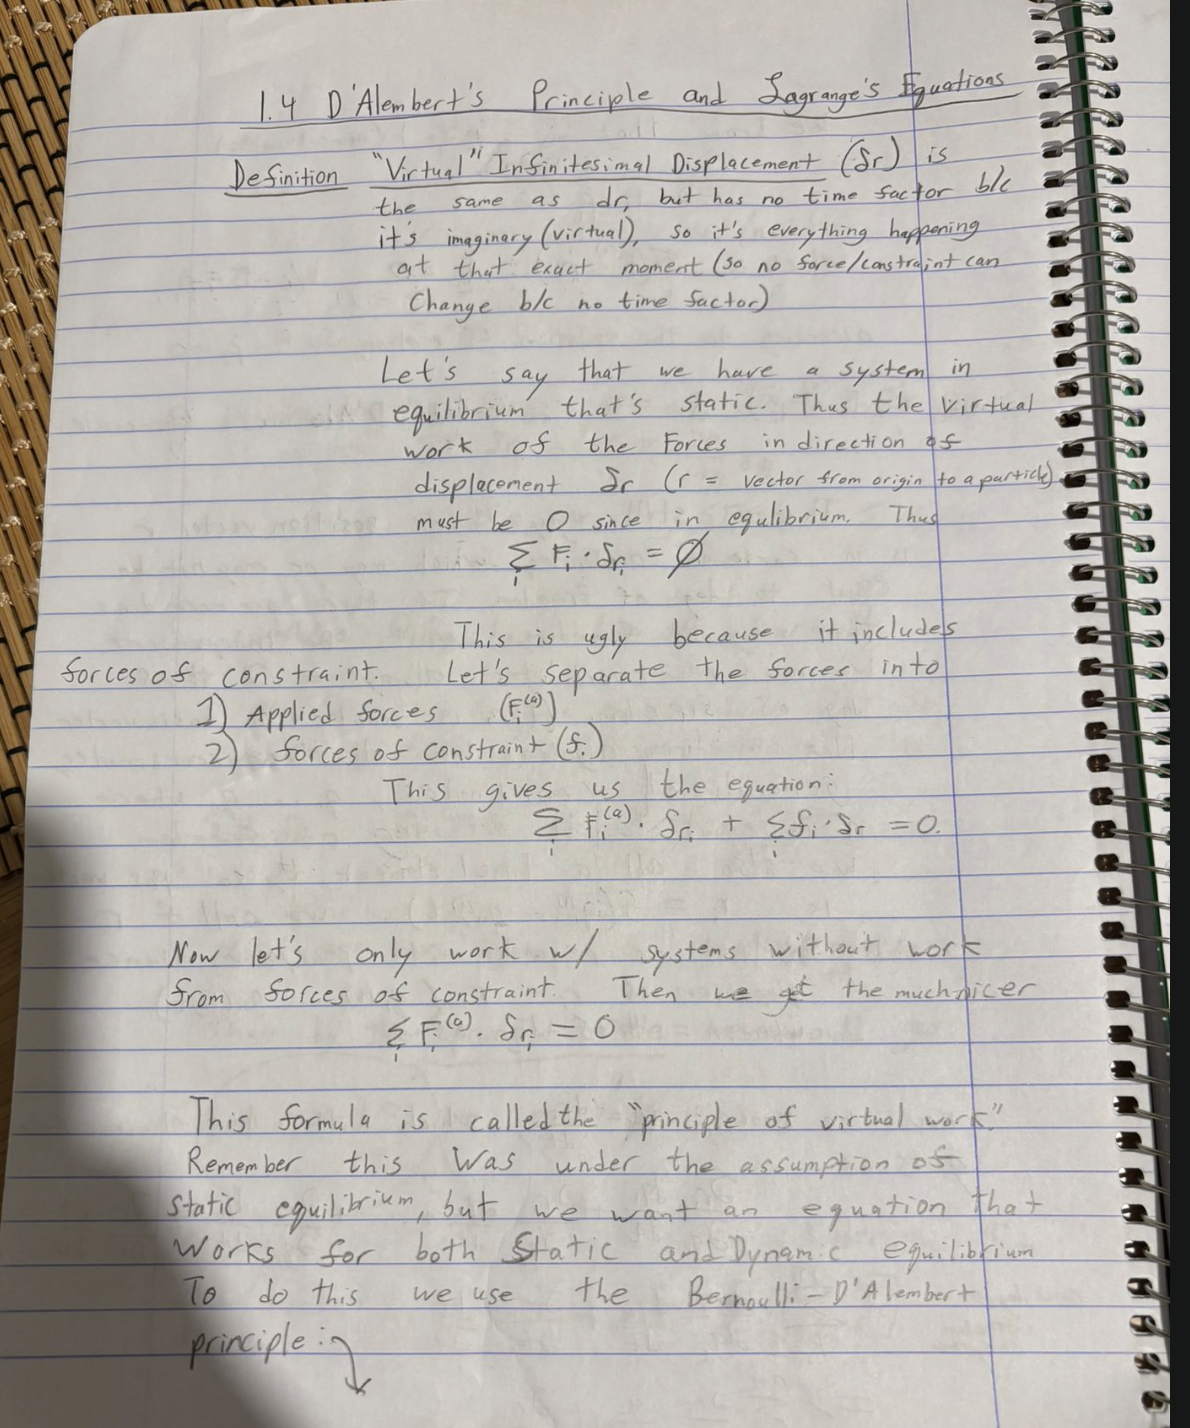 1.4 D'Alembert's Principle and Lagrange's Equations
Definition "Virtual" Infinitesimal Displacement (δr) is
the same as dr, but has no time factor b/c
it's imaginary (virtual), so it's everything happening
at that exact moment (so no force/constraint can
Change b/c no time factor)
Let's say that we have a system in
equilibrium that's static. Thus the virtual
work of the Forces in direction of
displacement δr (r = vector from origin to a particle)
must be 0 since in equlibrium. Thus
∑ᵢ Fᵢ · δrᵢ = ∅
This is ugly because it includes
forces of constraint. Let's separate the forces into
1) Applied forces (Fᵢ⁽ᵃ⁾)
2) forces of constraint (fᵢ)
This gives us the equation:
∑ᵢ Fᵢ⁽ᵃ⁾ · δrᵢ + ∑ᵢ fᵢ · δr = 0.
Now let's only work w/ systems without work
from forces of constraint. Then we get the much nicer
∑ᵢ Fᵢ⁽ᵃ⁾ · δrᵢ = 0
This formula is called the "principle of virtual work."
Remember this was under the assumption of
static equilibrium, but we want an equation that
works for both Static and Dynamic equilibrium
To do this we use the Bernoulli - D'Alembert
principle :↴